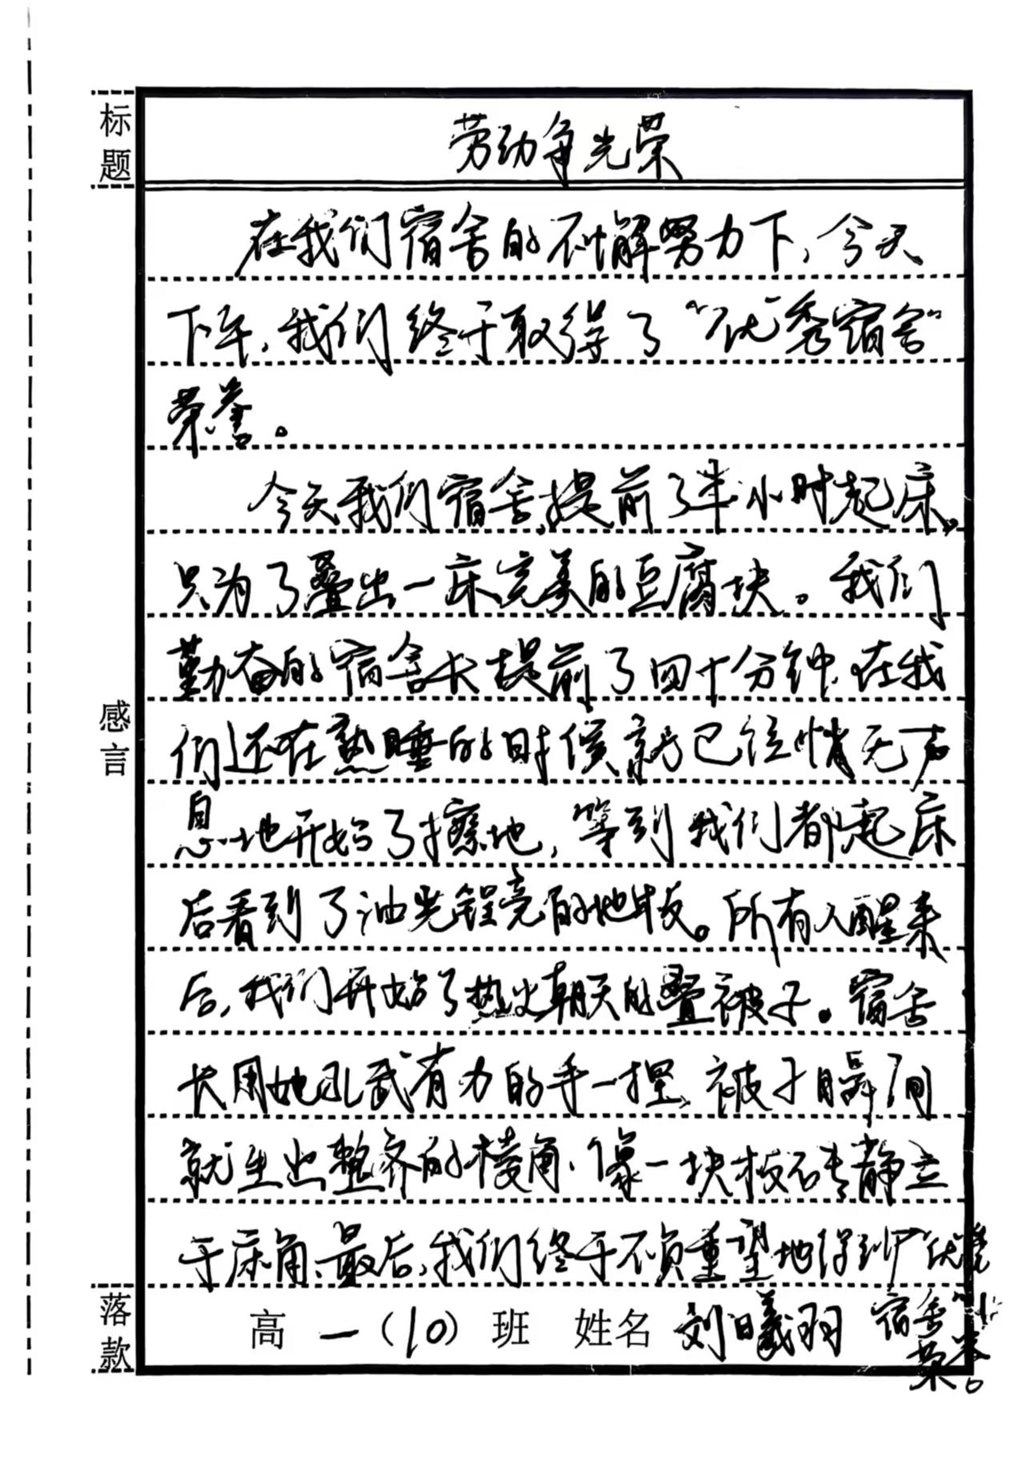 标题
劳动争光荣
在我们宿舍的不懈努力下，今天
下午，我们终于取得了“优秀宿舍”
荣誉。
今天我们宿舍提前了半小时起床，
只为了叠出一床完美的豆腐块。我们
勤奋的宿舍长提前了四十分钟，在我
们还在熟睡的时候就已经悄无声
息地开始了擦地，等到我们都起床
后看到了油光锃亮的地板。所有人醒来
后，我们开始了热火朝天的叠被子。宿舍
长用她孔武有力的手一捏，被子瞬间
就生出整齐的棱角，像一块板砖静立
于床角，最后，我们终于不负重望地得到了“优秀
宿舍”
荣誉。
感言
落款
高一（10）班 姓名 刘曦羽